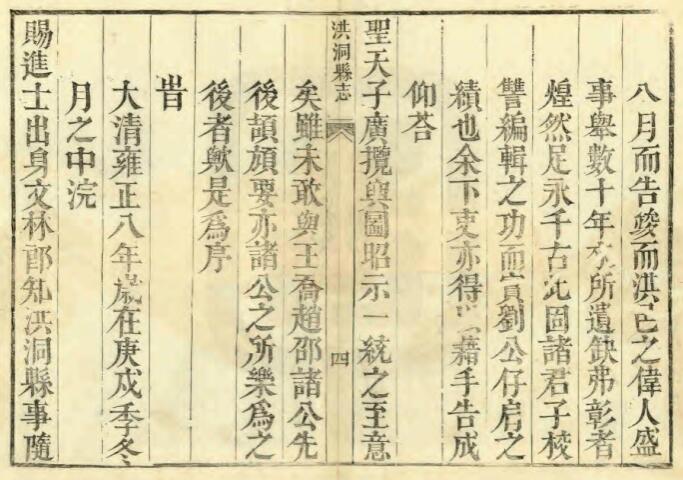 八月而告竣而洪邑之偉人盛
事舉數十年來所遺缺弗彰者
煌然足永千古此固諸君子校
讐編輯之功而實劉公仔肩之
績也余下吏亦得以藉手告成
仰荅
聖天子廣攬輿圖昭示一統之至意
洪洞縣志
四
矣雖未敢與王喬趙邵諸公先
後頡頏要亦諸公之所樂爲之
後者歟是爲序
旹
大清雍正八年歲在庚戌季冬
月之中浣
賜進士出身文林郎知洪洞縣事隨